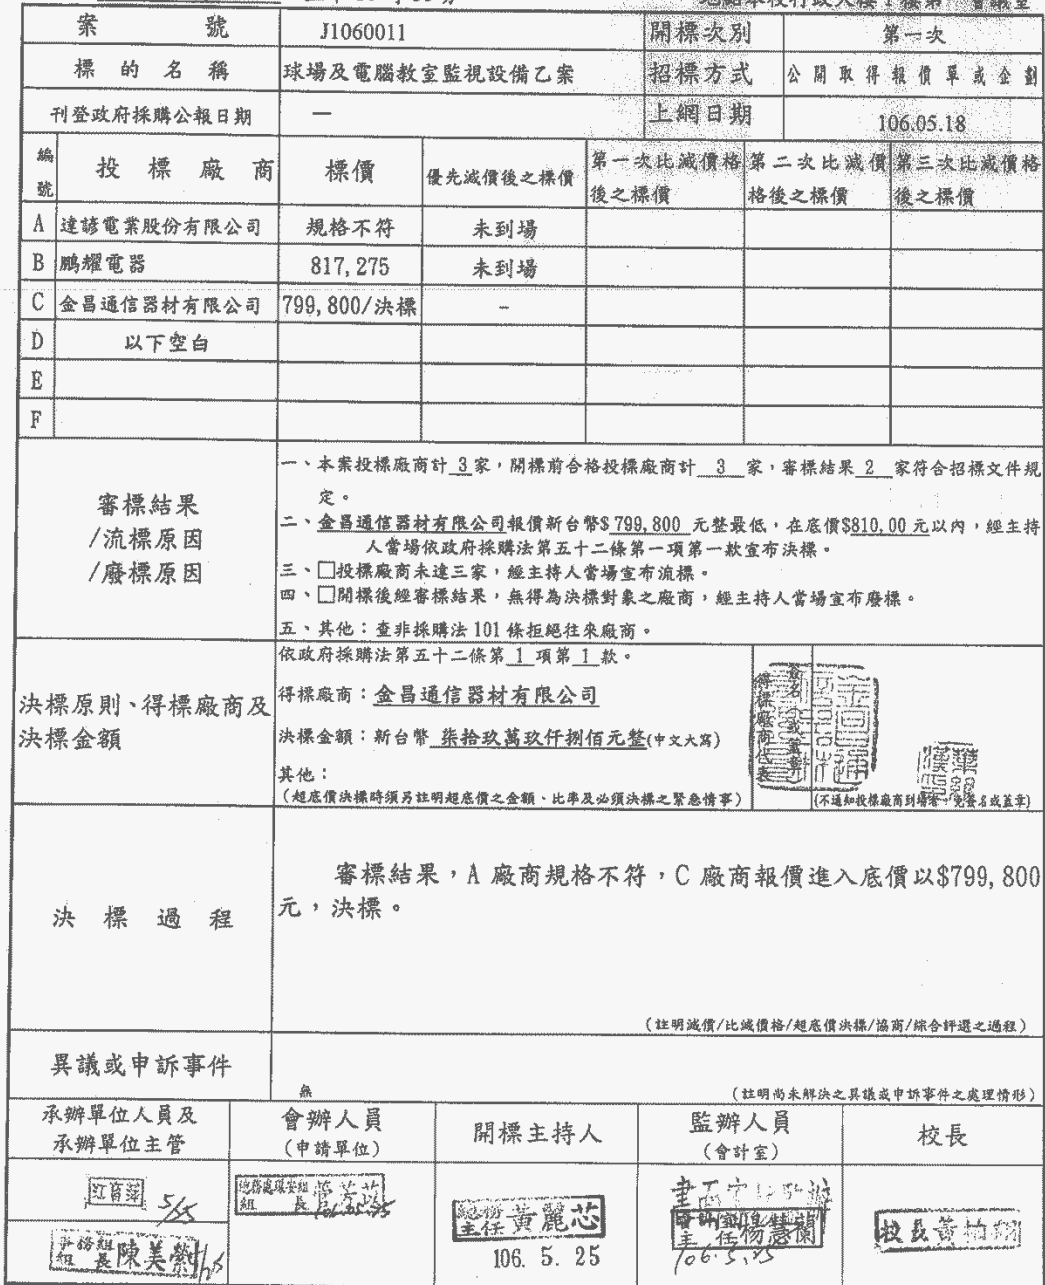 案號 J1060011 開標次別 第一次
標的名稱 球場及電腦教室監視設備乙案 招標方式 公開取得報價單或企劃
刊登政府採購公報日期 — 上網日期 106.05.18
編號 投標廠商 標價 優先減價後之標價 第一次比減價格後之標價 第二次比減價格後之標價 第三次比減價格後之標價
A 達諺電業股份有限公司 規格不符 未到場
B 鵬耀電器 817,275 未到場
C 金昌通信器材有限公司 799,800/決標 -
D 以下空白
E
F
審標結果
/流標原因
/廢標原因
一、本案投標廠商計 3 家,開標前合格投標廠商計 3 家,審標結果 2 家符合招標文件規
定。
二、金昌通信器材有限公司報價新台幣$ 799,800 元整最低,在底價$810,00 元以內,經主持
人當場依政府採購法第五十二條第一項第一款宣布決標。
三、□投標廠商未達三家,經主持人當場宣布流標。
四、□開標後經審標結果,無得為決標對象之廠商,經主持人當場宣布廢標。
五、其他:查非採購法 101 條拒絕往來廠商。
決標原則、得標廠商及
決標金額
依政府採購法第五十二條第 1 項第 1 款。
得標廠商:金昌通信器材有限公司
決標金額:新台幣 柒拾玖萬玖仟捌佰元整(中文大寫)
其他:
(超底價決標時須另註明超底價之金額、比率及必須決標之緊急情事)
得標廠商代表
簽名(或蓋章)
(不通知投標廠商到場者,免簽名或蓋章)
決標過程
審標結果,A 廠商規格不符,C 廠商報價進入底價以$799,800
元,決標。
(註明減價/比減價格/超底價決標/協商/綜合評選之過程)
異議或申訴事件
無
(註明尚未解決之異議或申訴事件之處理情形)
承辦單位人員及
承辦單位主管
會辦人員
(申請單位)
開標主持人
監辦人員
(會計室)
校長
5/25
事務組長 陳美縈
106.05.25
總務主任 黃麗芯
106. 5. 25
106.5.25
校長 黃柏翔